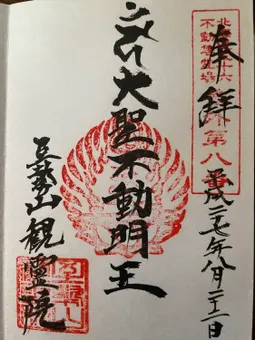 奉拝
北海道三十六
不動尊霊場
第八
平成二十七年八月二十二日
大聖不動明王
山観霊院